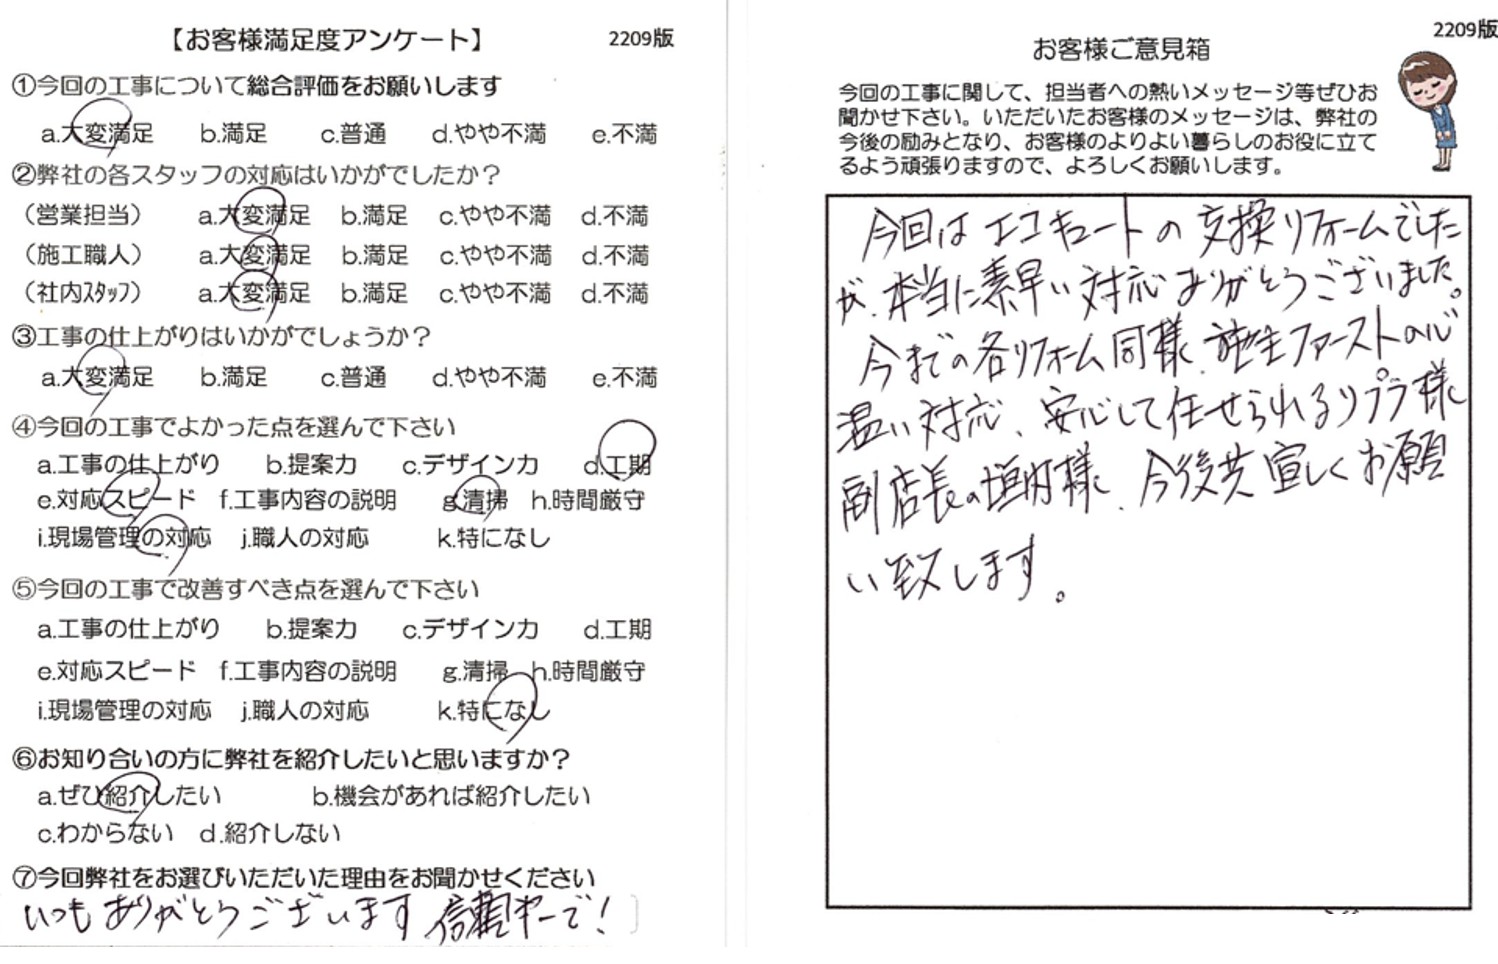 【お客様満足度アンケート】 2209版
①今回の工事について総合評価をお願いします
a.大変満足 b.満足 c.普通 d.やや不満 e.不満
②弊社の各スタッフの対応はいかがでしたか？
（営業担当） a.大変満足 b.満足 c.やや不満 d.不満
（施工職人） a.大変満足 b.満足 c.やや不満 d.不満
（社内ｽﾀｯﾌ） a.大変満足 b.満足 c.やや不満 d.不満
③工事の仕上がりはいかがでしょうか？
a.大変満足 b.満足 c.普通 d.やや不満 e.不満
④今回の工事でよかった点を選んで下さい
a.工事の仕上がり b.提案力 c.デザイン力 d.工期
e.対応スピード f.工事内容の説明 g.清掃 h.時間厳守
i.現場管理の対応 j.職人の対応 k.特になし
⑤今回の工事で改善すべき点を選んで下さい
a.工事の仕上がり b.提案力 c.デザイン力 d.工期
e.対応スピード f.工事内容の説明 g.清掃 h.時間厳守
i.現場管理の対応 j.職人の対応 k.特になし
⑥お知り合いの方に弊社を紹介したいと思いますか？
a.ぜひ紹介したい b.機会があれば紹介したい
c.わからない d.紹介しない
⑦今回弊社をお選びいただいた理由をお聞かせください
いつもありがとうございます 信頼 一で！
2209版
お客様ご意見箱
今回の工事に関して、担当者への熱いメッセージ等ぜひお
聞かせ下さい。いただいたお客様のメッセージは、弊社の
今後の励みとなり、お客様のよりよい暮らしのお役に立て
るよう頑張りますので、よろしくお願いします。
今回はエコキュートの交換リフォームでした
が、本当に素早い対応ありがとうございました。
今までの各リフォーム同様、施主ファーストの心
温い対応、安心して任せられるリプラ様
副店長の垣内様、今後共宜しくお願
い致します。